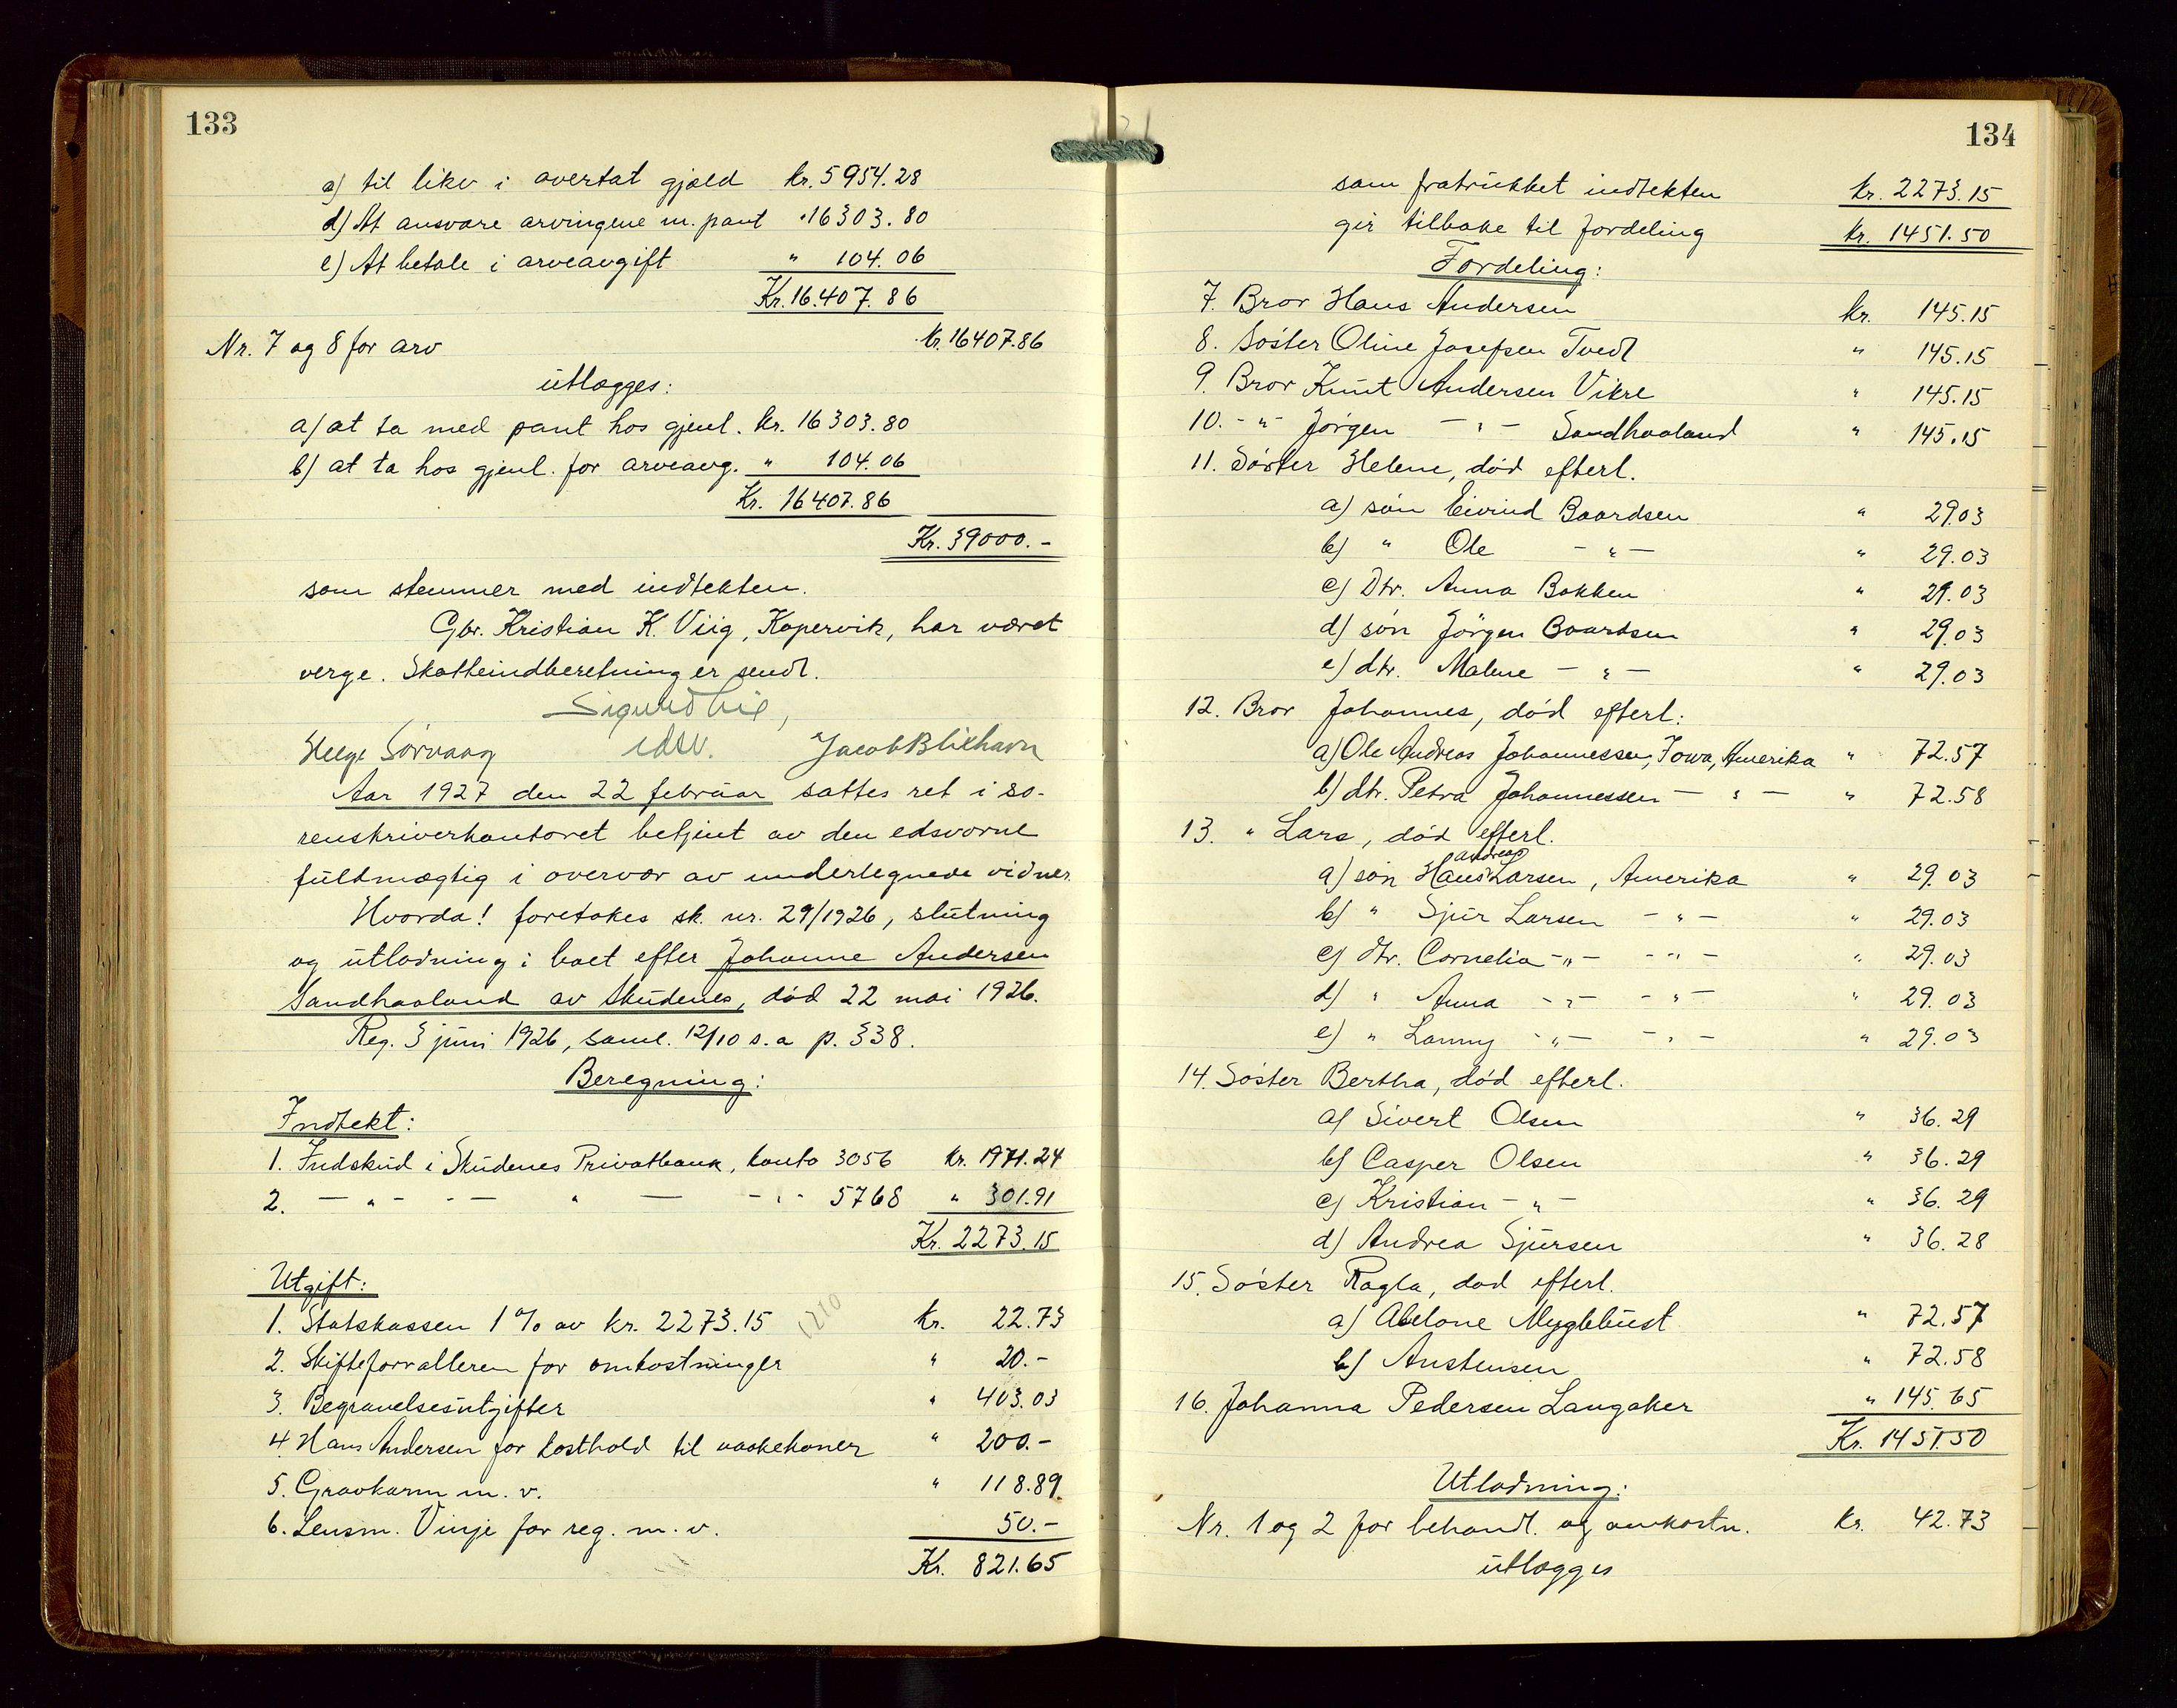 133
a) til likv i overtat gjæld kr. 5954.28
d) At ansvare arvingene m. pant " 16303.80
e) At betale i arveavgift " 104.06
Kr. 16.407.86
Nr. 7 og 8 for arv kr. 16407.86
utlægges:
a) at ta med pant hos gjenl. kr. 16303.80
b) at ta hos gjenl. for arveavg. " 104.06
Kr. 16407.86
Kr. 39000.-
som stemmer med indtekten.
Gbr. Kristian K. Viig, Kopervik, har været
verge. Skatteindberetning er sendt.
Helge Sørvaag edsv. Jacob Blixhavn
Aar 1927 den 22 februar sattes ret i so-
renskriverkontoret betjent av den edsvorne
fuldmægtig i overvær av undertegnede vidner.
Hvorda! foretokes sk. nr. 29/1926, slutning
og utlodning i boet efter Johanne Andersen
Sandhaaland av Skudenes, død 22 mai 1926.
Reg. 3 juni 1926, saml. 12/10 s.a p. 338.
Beregning:
Indtekt:
1. Indskud i Skudenes Privatbank, konto 3056 kr. 1971.24
2. — " — - — " — - " - 5768 " 301.91
Kr. 2273.15
Utgift:
1. Statskassen 1% av kr. 2273.15 kr. 22.73
2. Skifteforvalteren for omkostninger " 20.-
3. Begravelsesutgifter " 403.03
4. Hans Andersen for kosthold til vaskekoner " 200.-
5. Gravkarm m. v. " 118.89.
6. Lensm. Vinje for reg. m. v. 50.-
Kr. 821.65
134
som fratrukket indtekten kr. 2273.15
gir tilbake til fordeling kr. 1451.50
Fordeling:
7. Bror Hans Andersen kr. 145.15
8. Søster Oline Josefsen Tvedt " 145.15
9. Bror Knut Andersen Vikre " 145.15
10. - " - Jørgen - " - Sandhaaland " 145.15
11. Søster Helene, død efterl.
a) søn Eivind Baardsen " 29.03
b) " Ole - " - " 29.03
c) Dtr. Anna Bakken " 29.03
d) søn Jørgen Baardsen " 29.03
e) dtr. Malene - " - " 29.03
12. Bror Johannes, død efterl:
a) Ole Andreas Johannessen, Iowa, Amerika " 72.57
b) dtr. Petra Johannessen - " - " 72.58
13. " Lars, død efterl.
a) søn Hans Andreas Larsen, Amerika " 29.03
b) " Sjur Larsen - " - " 29.03
c) dtr. Cornelia - " - - " - " 29.03
d) " Anna - " - - " - " 29.03
e) " Lanny - " - - " - " 29.03
14. Søster Bertha, død efterl.
a) Sivert Olsen " 36.29
b) Casper Olsen " 36.29
c) Kristian - " - " 36.29
d) Andrea Sjursen " 36.28
15. Søster Ragla, død efterl.
a) Abelone Myglebust " 72.57
b) Austensen " 72.58
16. Johanna Pedersen Langaker " 145.65
Kr. 1451.50
Utlodning:
Nr. 1 og 2 for behandl. og omkostn. kr. 42.73
utlægges